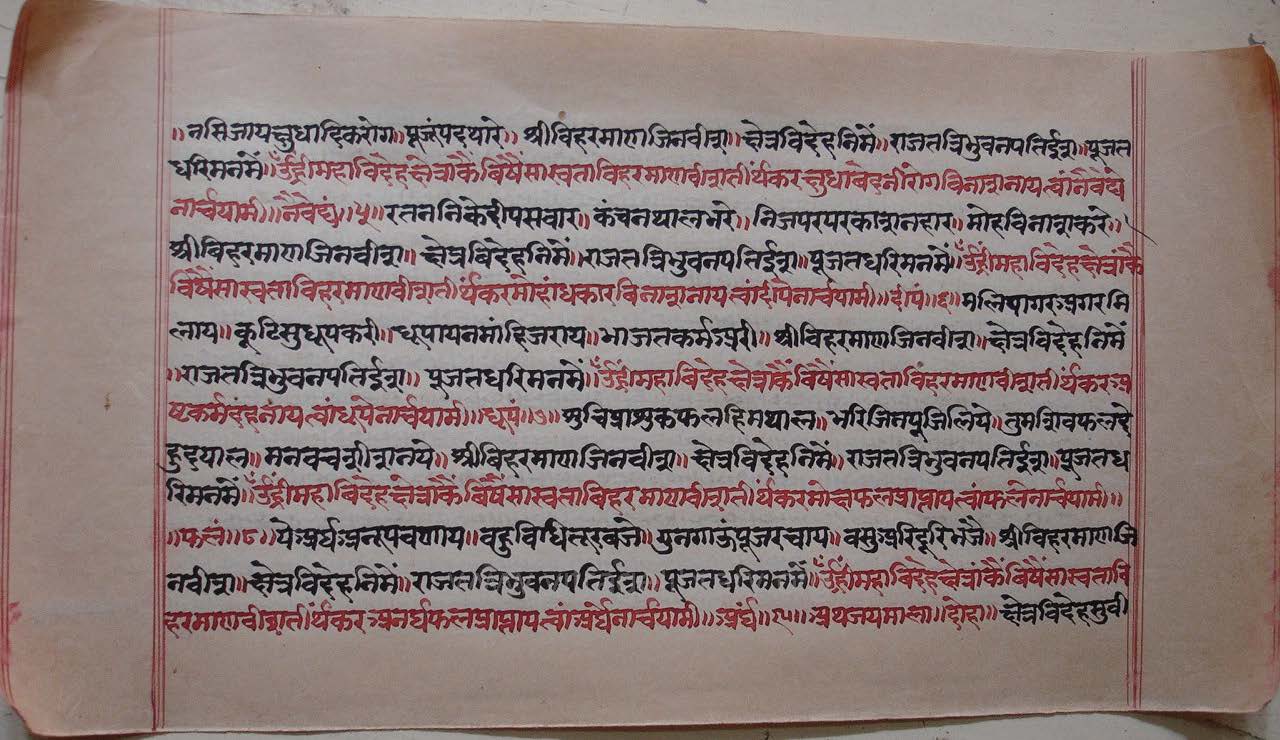 ॥नसिजायक्षुधादिकरोग॥पूजूंपदथारे॥श्रीविहरमाणजिनवीश॥क्षेत्रविदेहनिमें॥राजतत्रिभुवनपतिईश॥पूजत
धरिमनमें॥ॐह्रीमहाविदेहक्षेत्राकैविषैंसास्वताविहरमाणवीशतीर्थंकरक्षुधावेदनीरोगविनाशनायत्वांनैवेद्ये
नार्चयामी॥नैवेद्यं॥५॥रतननिकेदीपसवार॥कंचनथालभरे॥निजपरपरकाशनहार॥मोहविनाशकरे॥
श्रीविहरमाणजिनवीश॥क्षेत्रविदेहनिमें॥राजतत्रिभुवनपतिईश॥पूजतधरिमनमें॥ॐह्रीमहाविदेहक्षेत्राकै
विषैंसास्वताविहरमाणवीशतीर्थंकरमोहांधकारविनाशनायत्वांदीपेनार्चयामी॥दीपं॥६॥मलियागरअगरमि
लाय॥कुटिसुधूपकरी॥धूपायनमांहिजराय॥भाजतकर्मअरी॥श्रीविहरमाणजिनवीश॥क्षेत्रविदेहनिमें
॥राजतत्रिभुवनपतिईश॥पूजतधरिमनमें॥ॐह्रीमहाविदेहक्षेत्राकैंविषैंसास्वताविहरमाणवीशतीर्थंकरअ
ष्टकर्मदहनायत्वांधूपेनार्चयामी॥धूपं॥७॥शुचिप्राशुकफलहिमथाल॥भरिजिनपूजिलिये॥तुमशिवफलदे
हुदयाल॥मनवचशीशनये॥श्रीविहरमाणजिनवीश॥क्षेत्रविदेहनिमें॥राजतत्रिभुवनपतिईश॥पूजतध
रिमनमें॥ॐह्रीमहाविदेहक्षेत्राकैंविषैंसास्वताविहरमाणवीशतीर्थंकरमोक्षफलप्राप्तायत्वांफलेनार्चयामी॥
॥फलं॥८॥येअर्घअनूपचणाय॥बहुविधितूरबजे॥गुनगाऊंपूजरचाय॥वसुअरिदूरिभजै॥श्रीविहरमाणजि
नवीश॥क्षेत्रविदेहनिमें॥राजतत्रिभुवनपतिईश॥पूजतधरिमनमें॥ॐह्रीमहाविदेहक्षेत्रांकैंविषैंसास्वतावि
हरमाणवीशतीर्थंकरअनर्घफलप्राप्तायत्वांअर्घेनार्चयामी॥अर्घं॥९॥अथजयमाला॥दोहा॥क्षेत्रविदेहसुवी